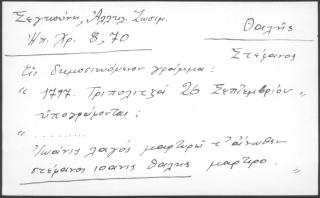 Σεγκούνη, Ἀλληλ. Ζωσιμ.
Ἠπ. Χρ. 8, 70
Θαλῆς
Στέμανος
Εἰς δημοσιευόμενον γράμμα:
" 1797. Τριπολιτζά 26 Σεπτεμβρίου "
ὑπογράφονται:
" . . . . . . . . .
Ἰωάνις λαγός μαρτυρῶ τ' ἄνωθεν
στέμανος ιοανις θαλης μαρτιρο. "